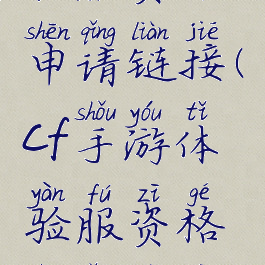 shēn qǐng liàn jiē
申请链接(
shǒu yóu tǐ
cf手游体
yàn fú zī gé
验服资格